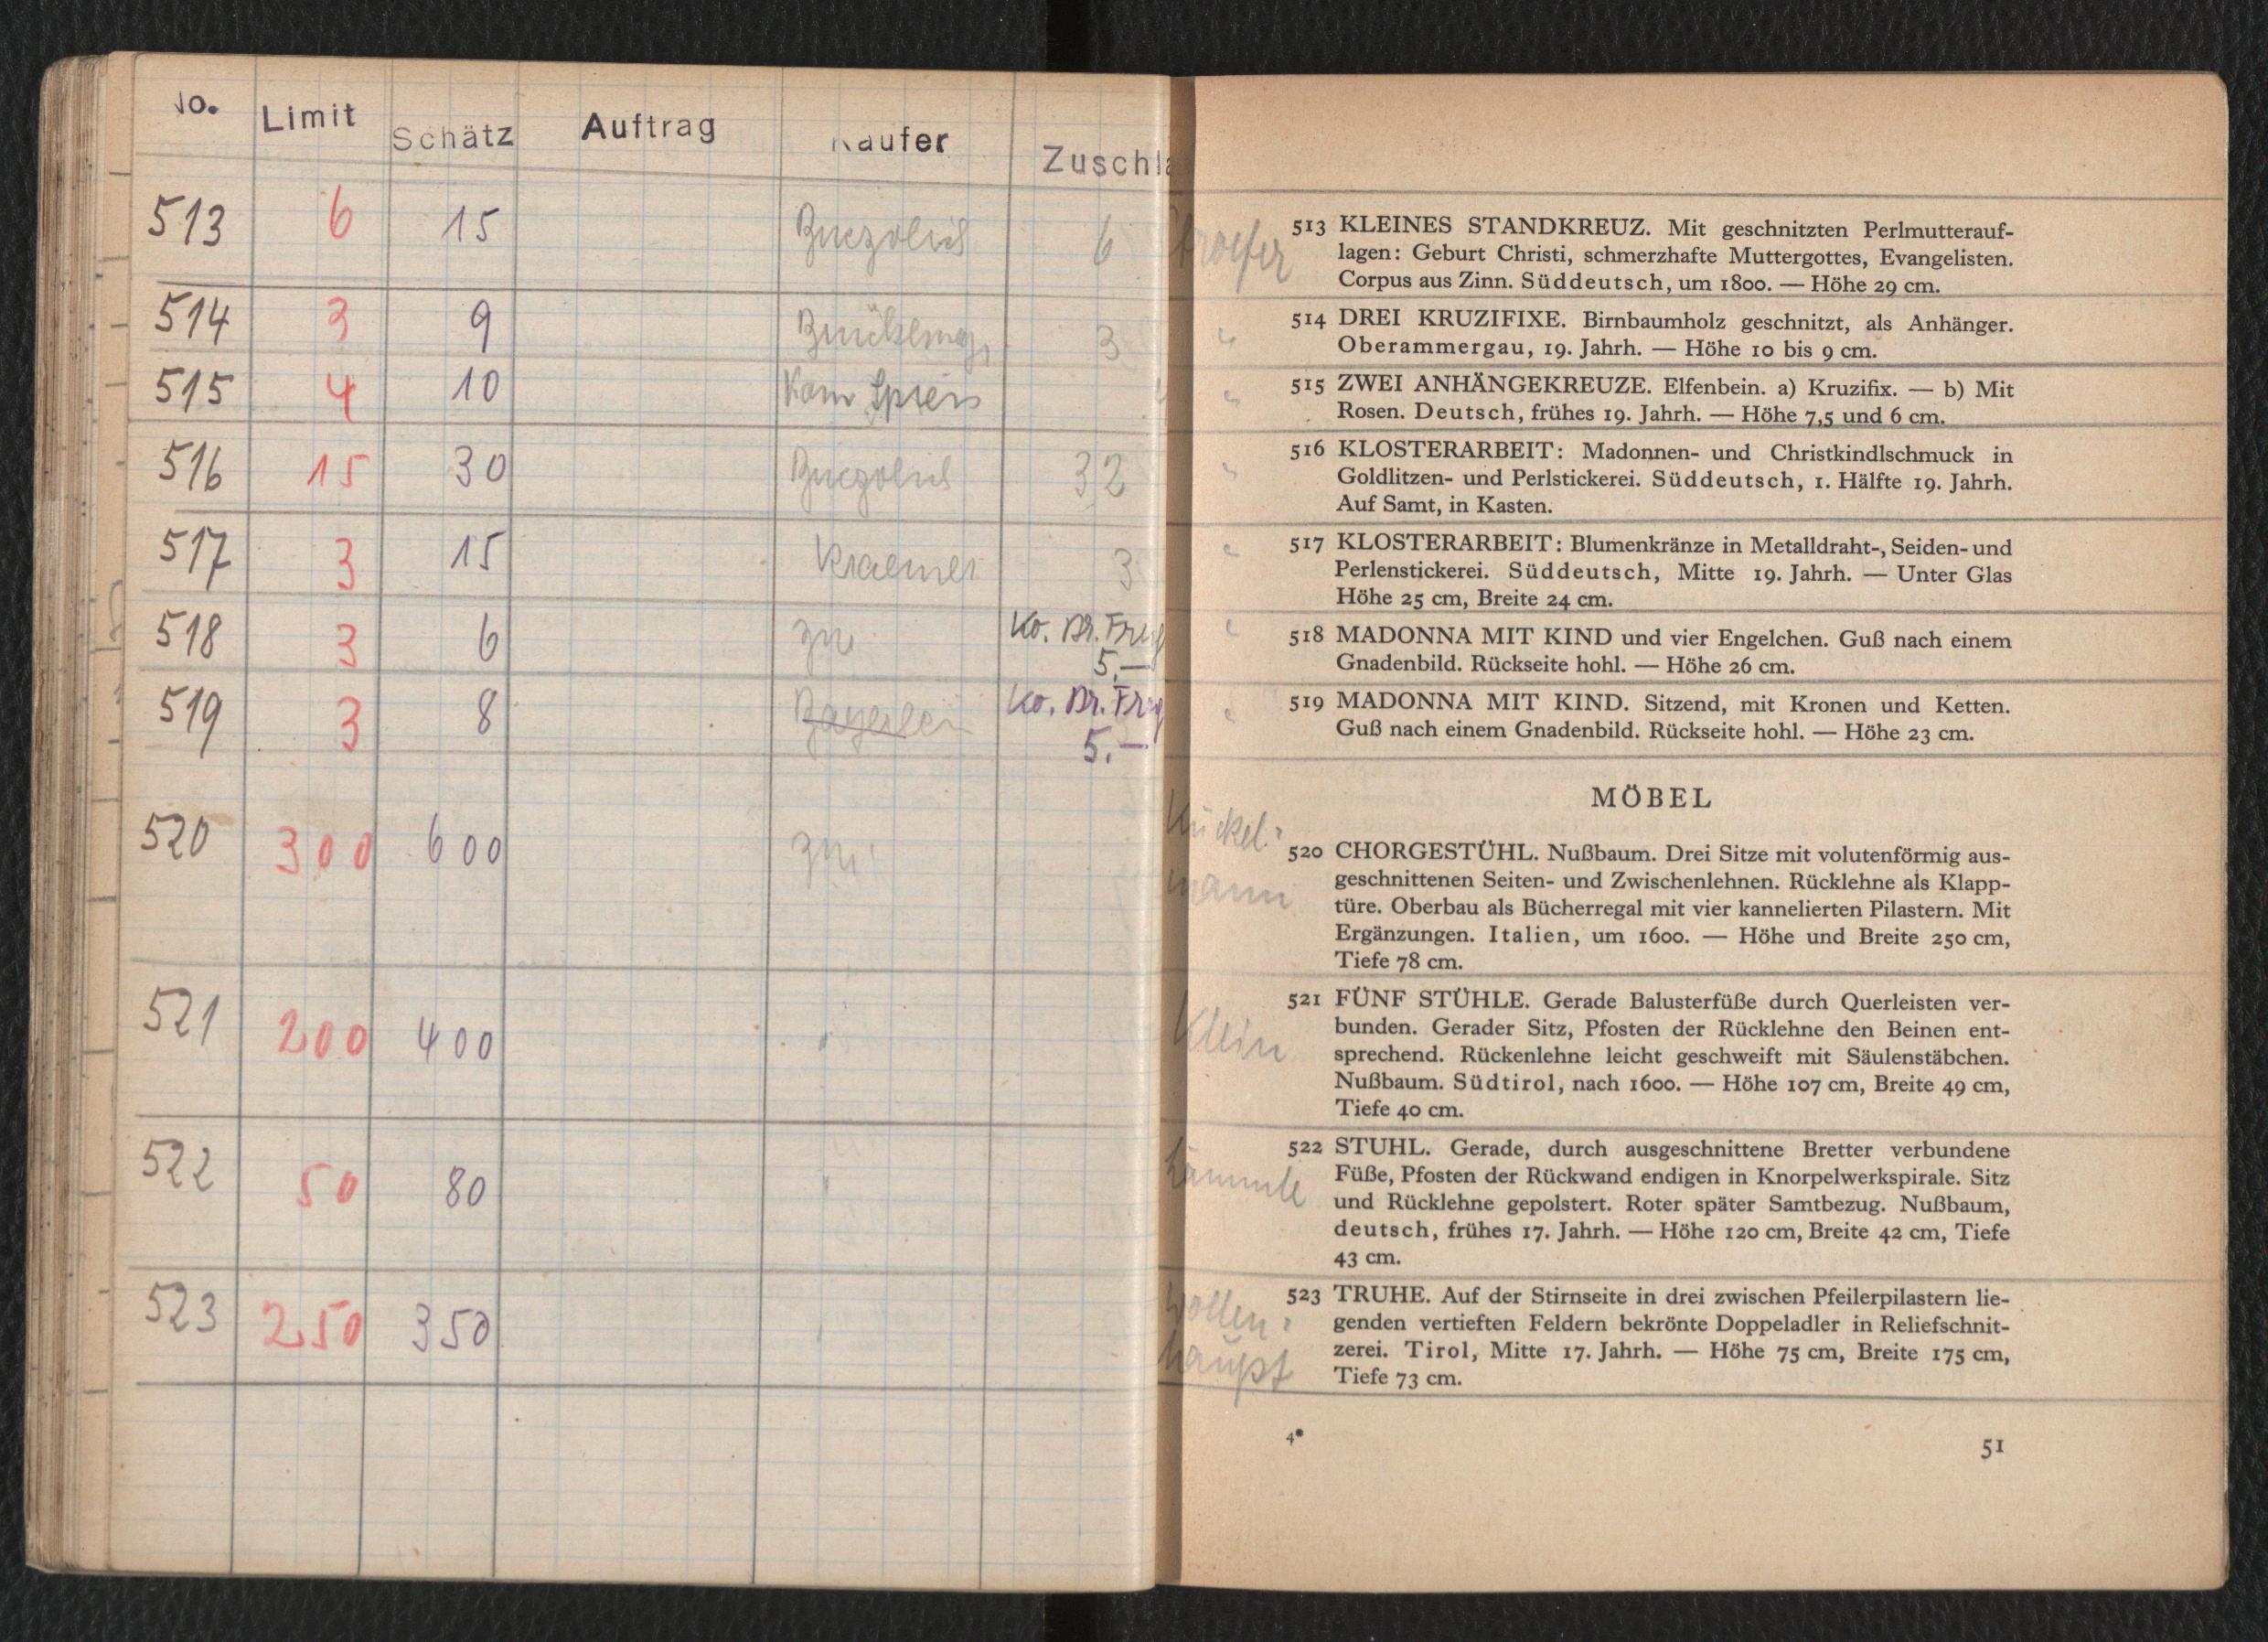 No. Limit Schätz Auftrag Käufer Zuschla
513 6 15 6
514 3 9 3
515 4 10 Kom Spiers
516 15 30 32
517 3 15 Kraemer 3
518 3 6 zur Ko. Dr. Frey
5.—
519 3 8 Ko. Dr. Frey
5.—
520 300 600 zur
521 200 400 "
522 50 80 "
523 250 350 "
513 KLEINES STANDKREUZ. Mit geschnitzten Perlmutterauf-
lagen: Geburt Christi, schmerzhafte Muttergottes, Evangelisten.
Corpus aus Zinn. Süddeutsch, um 1800. — Höhe 29 cm.
" 514 DREI KRUZIFIXE. Birnbaumholz geschnitzt, als Anhänger.
Oberammergau, 19. Jahrh. — Höhe 10 bis 9 cm.
" 515 ZWEI ANHÄNGEKREUZE. Elfenbein. a) Kruzifix. — b) Mit
Rosen. Deutsch, frühes 19. Jahrh. — Höhe 7,5 und 6 cm.
" 516 KLOSTERARBEIT: Madonnen- und Christkindlschmuck in
Goldlitzen- und Perlstickerei. Süddeutsch, 1. Hälfte 19. Jahrh.
Auf Samt, in Kasten.
" 517 KLOSTERARBEIT: Blumenkränze in Metalldraht-, Seiden- und
Perlenstickerei. Süddeutsch, Mitte 19. Jahrh. — Unter Glas
Höhe 25 cm, Breite 24 cm.
" 518 MADONNA MIT KIND und vier Engelchen. Guß nach einem
Gnadenbild. Rückseite hohl. — Höhe 26 cm.
" 519 MADONNA MIT KIND. Sitzend, mit Kronen und Ketten.
Guß nach einem Gnadenbild. Rückseite hohl. — Höhe 23 cm.
MÖBEL
Kückel-
mann
520 CHORGESTÜHL. Nußbaum. Drei Sitze mit volutenförmig aus-
geschnittenen Seiten- und Zwischenlehnen. Rücklehne als Klapp-
türe. Oberbau als Bücherregal mit vier kannelierten Pilastern. Mit
Ergänzungen. Italien, um 1600. — Höhe und Breite 250 cm,
Tiefe 78 cm.
Klein
521 FÜNF STÜHLE. Gerade Balusterfüße durch Querleisten ver-
bunden. Gerader Sitz, Pfosten der Rücklehne den Beinen ent-
sprechend. Rückenlehne leicht geschweift mit Säulenstäbchen.
Nußbaum. Südtirol, nach 1600. — Höhe 107 cm, Breite 49 cm,
Tiefe 40 cm.
Lämmle
522 STUHL. Gerade, durch ausgeschnittene Bretter verbundene
Füße, Pfosten der Rückwand endigen in Knorpelwerkspirale. Sitz
und Rücklehne gepolstert. Roter später Samtbezug. Nußbaum,
deutsch, frühes 17. Jahrh. — Höhe 120 cm, Breite 42 cm, Tiefe
43 cm.
Wollen-
haupt
523 TRUHE. Auf der Stirnseite in drei zwischen Pfeilerpilastern lie-
genden vertieften Feldern bekrönte Doppeladler in Reliefschnit-
zerei. Tirol, Mitte 17. Jahrh. — Höhe 75 cm, Breite 175 cm,
Tiefe 73 cm.
4* 51